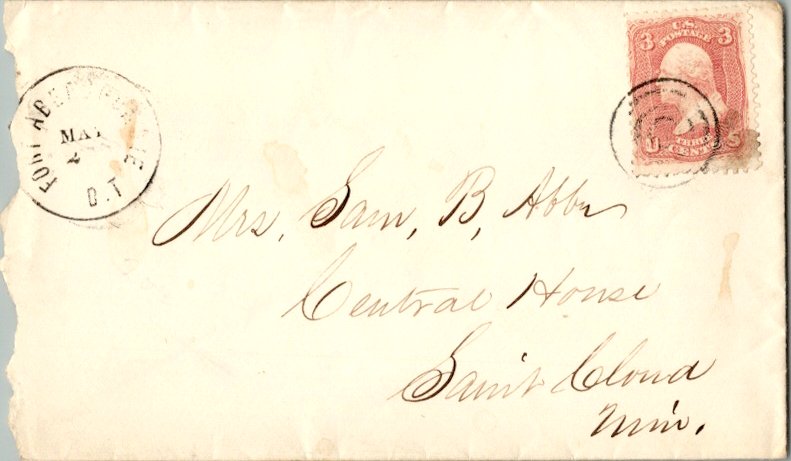 FORT ABERCROMBIE
MAY
2
D.T
3 U.S. 3
POSTAGE
U THREE S
CENTS
Mrs. Sam, B, Abbe
Central House
Saint Cloud
Min.